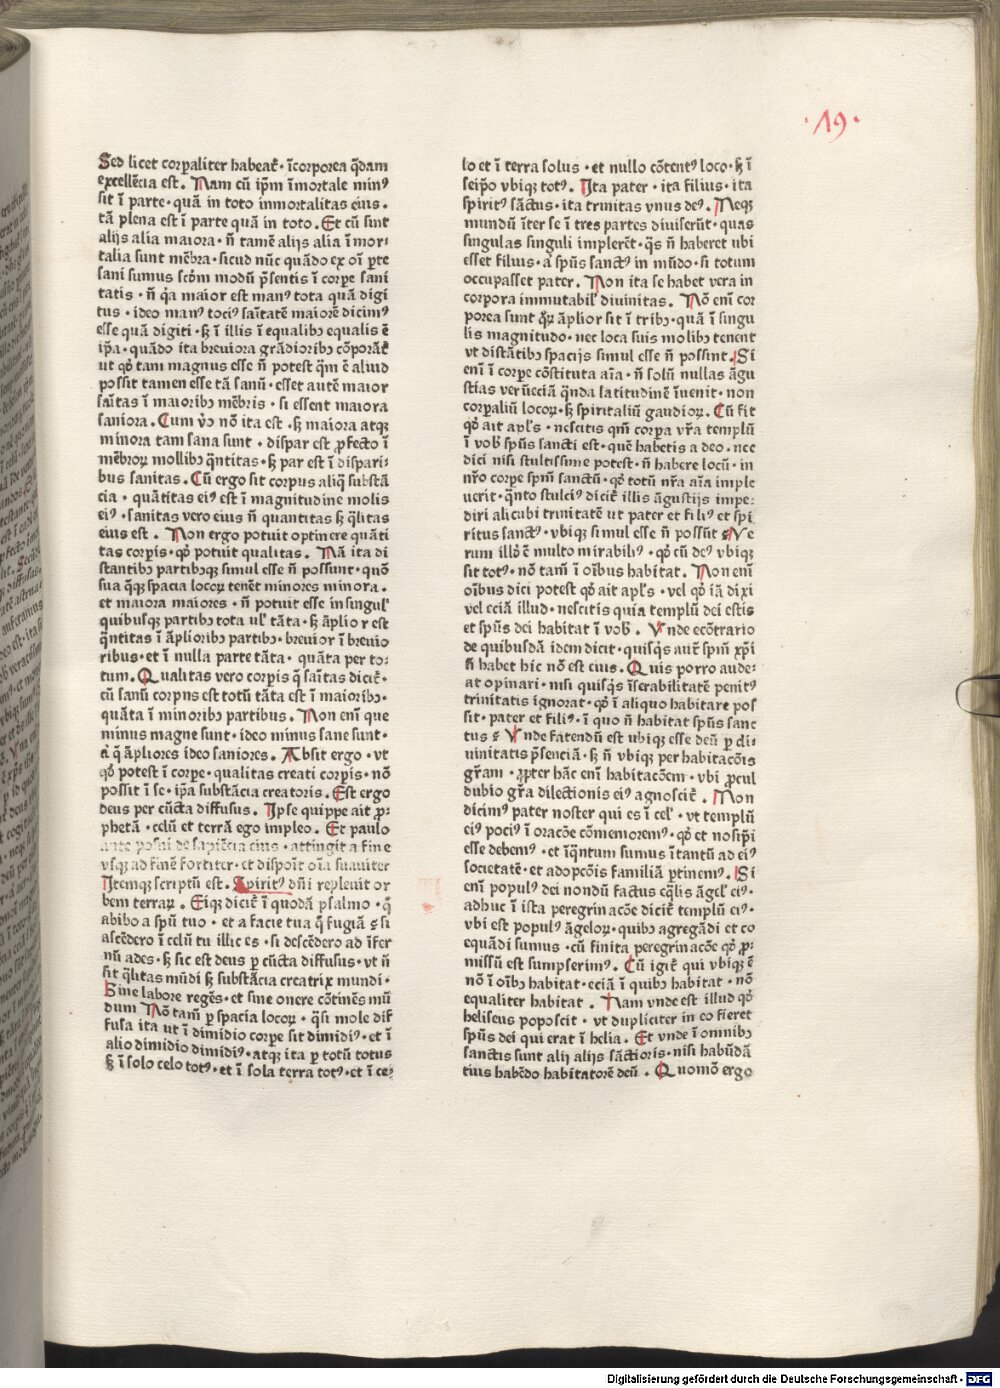 ·19·
Sed licet corꝑaliter habeat̃ · ĩcorporea q̃dam
excellẽcia est . Nam cũ ip̃m ĩmortale minꝰ
sit ĩ parte · quã in toto inmortalitas eius ·
tã plena est ĩ parte quã in toto . Et cũ sint
alijs alia maiora · ñ tamẽ alijs alia ĩmor⸗
talia sunt mẽbra · sicud nũc quãdo ex oĩ ꝑte
sani sumus scd̃m modũ p̃sentis ĩ corꝑe sani
tatis · ñ q̃a maior est manꝰ tota quã digi
tus · ideo manꝰ tociꝰ saĩtatẽ maiorẽ dicimꝰ
esse quã digiti · ꝫ ĩ illis ĩ equalibꝫ equalis ẽ
ip̃a · quãdo ita breuiora grãdioribꝫ cõporãt̃
ut qd̃ tam magnus esse ñ potest q̃m ẽ aliud
possit tamen esse tã sanũ · esset autẽ maior
saĩtas ĩ maioribꝫ mẽbris · si essent maiora
saniora . Cum ṽo nõ ita est · ꝫ maiora atqꝫ
minora tam sana sunt · dispar est ꝓfecto ĩ
mẽbroꝝ mollibꝫ q̃ntitas · ꝫ par est ĩ dispari⸗
bus sanitas . Cũ ergo sit corpus aliq̃ substã
cia · quãtitas eiꝰ est ĩ magnitudine molis
eiꝰ · sanitas vero eius ñ quantitas ꝫ q̃litas
eius est . Non ergo potuit optinere quãti
tas corpis · qd̃ potuit qualitas . Nã ita di
stantibꝫ partibꝫqꝫ simul esse ñ possunt · quõ
sua q̃qꝫ spacia locoꝝ tenẽt minores minora ·
et maiora maiores · ñ potuit esse in singul̃
quibusqꝫ partibꝫ tota ul̃ tãta · ꝫ ãplior est
q̃ntitas ĩ ãplioribꝫ partibꝫ · breuior ĩ breuio
ribus · et ĩ nulla parte tãta · quãta per to⸗
tum . Qualitas vero corꝑis q̃ saĩtas dicit̃ ·
cũ sanũ corpus est totũ tãta est ĩ maioribꝫ ·
quãta ĩ minoribꝫ partibus . Non enĩ que
minus magne sunt · ideo minus sane sunt ·
ã q̃ ãpliores ideo saniores . Absit ergo · vt
qd̃ potest ĩ corꝑe · qualitas creati corꝑis · nõ
possit ĩ se · ip̃a substãcia creatoris . Est ergo
deus per cũcta diffusus . Ipse quippe ait ꝓ⸗
phetã · celũ et terrã ego impleo . Et paulo
ante posui de sapiẽcia eius · attingit a fine
vsqꝫ ad finẽ fortiter · et dispoĩt oĩa suauiter
Itemqꝫ scriptũ est . Spiritꝰ dñi repleuit or
bem terraꝝ . Eiqꝫ dicit̃ ĩ quodã psalmo · q̃
abibo a spũ tuo · et a facie tua q̃ fugiã ꝭ si
ascẽdero ĩ celũ tu illic es · si descẽdero ad ĩfer
nũ ades · ꝫ sic est deus ꝑ cũcta diffusus · vt ñ
sit q̃litas mũdi ꝫ substãcia creatrix mundi ·
Sine labore regẽs · et sine onere cõtinẽs mũ
dum Nõ tam̃ ꝑ spacia locoꝝ · q̃si mole dif
fusa ita ut ĩ dimidio corꝑe sit dimidiꝰ · et ĩ
alio dimidio dimidiꝰ · atqꝫ ita ꝑ totũ totus
ꝫ ĩ solo celo totꝰ · et ĩ sola terra totꝰ · et ĩ ce⸗
lo et ĩ terra solus · et nullo cõtentꝰ loco · ꝫ ĩ
seip̃o vbiqꝫ totꝰ . Ita pater · ita filius · ita
spiritꝰ sãctus · ita trinitas vnus deꝰ . Neqꝫ
mundũ ĩter se ĩ tres partes diuiserũt · quas
singulas singuli implerẽt · q̃s ñ haberet ubi
esset filius · a᷒ spũs sanctꝰ in mũdo · si totum
occupasset pater . Non ita se habet vera in
corpora immutabil̃ diuinitas . Nõ enĩ cor
porea sunt qꝝ ãplior sit ĩ tribꝫ · quã ĩ singu
lis magnitudo · nec loca suis molibꝫ tenent
vt distãtibꝫ spacijs simul esse ñ possint . Si
enĩ ĩ corꝑe cõstituta aĩa · ñ solũ nullas ãgu
stias verũeciã q̃nda latitudinẽ ĩuenit · non
corꝑaliũ locoꝝ · ꝫ spiritaliũ gaudioꝝ . Cũ fit
qd̃ ait apl̃s · nescitis qm̃ corꝑa vr̃a templũ
ĩ vob̃ spũs sancti est · quẽ habetis a deo · nec
dici nisi stultissime potest · ñ habere locũ · in
nr̃o corꝑe spm̃ sanctũ · qd̃ totũ nr̃a aĩa imple
uerit · q̃nto stulciꝰ dicit̃ illis ãgustijs impe⸗
diri alicubi trinitatẽ ut pater et filiꝰ et spi
ritus sanctꝰ · vbiqꝫ simul esse ñ possũt ꝭ Ve
rum illd̃ ẽ multo mirabiliꝰ · qd̃ cũ deꝰ vbiqꝫ
sit totꝰ · nõ tam̃ ĩ oĩbus habitat . Non enĩ
oĩbus dici potest qd̃ ait apl̃s · vel qd̃ iã dixi
vel eciã illud · nescitis quia templũ dei estis
et spũs dei habitat ĩ vob̃ . Vnde ecõtrario
de quibusdã idem dicit · quisq̃s aut̃ spm̃ xp̃i
ñ habet hic nõ est eius . Quis porro aude⸗
at opinari · nisi quisq̃s ĩserabilitatẽ penitꝰ
trinitatis ignorat · qd̃ ĩ aliquo habitare pos
sit · pater et filiꝰ · ĩ quo ñ habitat spũs sanc
tus ꝭ Vnde fatendũ est ubiqꝫ esse deũ ꝑ di⸗
uinitatis p̃senciã · ꝫ ñ vbiqꝫ per habitacõis
gr̃am · ꝓpter hãc enĩ habitacõem · vbi ꝓcul
dubio gr̃a dilectionis eiꝰ agnoscit̃ . Non
dicimꝰ pater noster qui es ĩ cel̃ · vt templũ
eiꝰ pociꝰ ĩ oracõe cõmemoremꝰ · qd̃ et nosip̃i
esse debemꝰ · et ĩq̃ntum sumus ĩtantũ ad eiꝰ
societatẽ · et adopcõis familiã ꝑtinemꝰ . Si
enĩ populꝰ dei nondũ factus eq̃lis ãgel̃ eiꝰ ·
adhuc ĩ ista peregrinacõe dicit̃ templũ eiꝰ ·
vbi est populꝰ ãgeloꝝ · quibꝫ agregãdi et co
equãdi sumus · cũ finita peregrinacõe qd̃ ꝓ⸗
missũ est sumpserimꝰ . Cũ igit̃ qui vbiqꝫ ẽ
nõ ĩ oĩbꝫ habitat · eciã ĩ quibꝫ habitat · nõ
equaliter habitat . Nam vnde est illud qd̃
heliseus poposcit · vt dupliciter in eo fieret
spũs dei qui erat ĩ helia . Et vnde ĩ omnibꝫ
sanctis sunt alij alijs sãctioris · nisi habũdã
tius habẽdo habitatorẽ deũ . Quomõ ergo
Digitalisierung gefördert durch die Deutsche Forschungsgemeinschaft · DFG